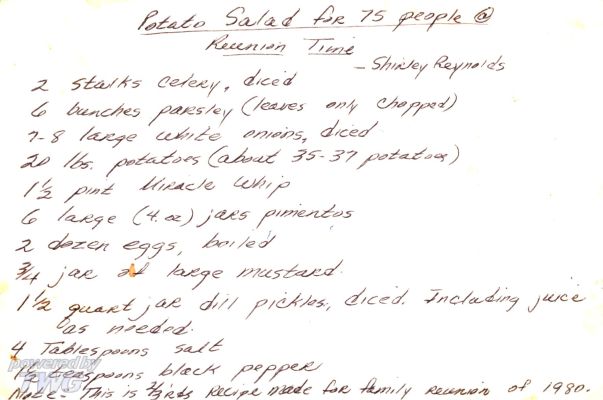 Potato Salad for 75 people @
Reunion Time
- Shirley Reynolds
2 stalks celery, diced
6 bunches parsley (leaves only chopped)
7-8 large white onions, diced
20 lbs. potatoes (about 35-37 potatoes)
1 1/2 pint Miracle Whip
6 large (4. oz) jars pimentos
2 dozen eggs, boiled
3/4 jar of large mustard.
1 1/2 quart jar dill pickles, diced. Including juice
as needed.
4 Tablespoons salt
1/2 teaspoons black pepper
Note- This is 2/3rds Recipe made for family reunion of 1980.
powered by
TWG